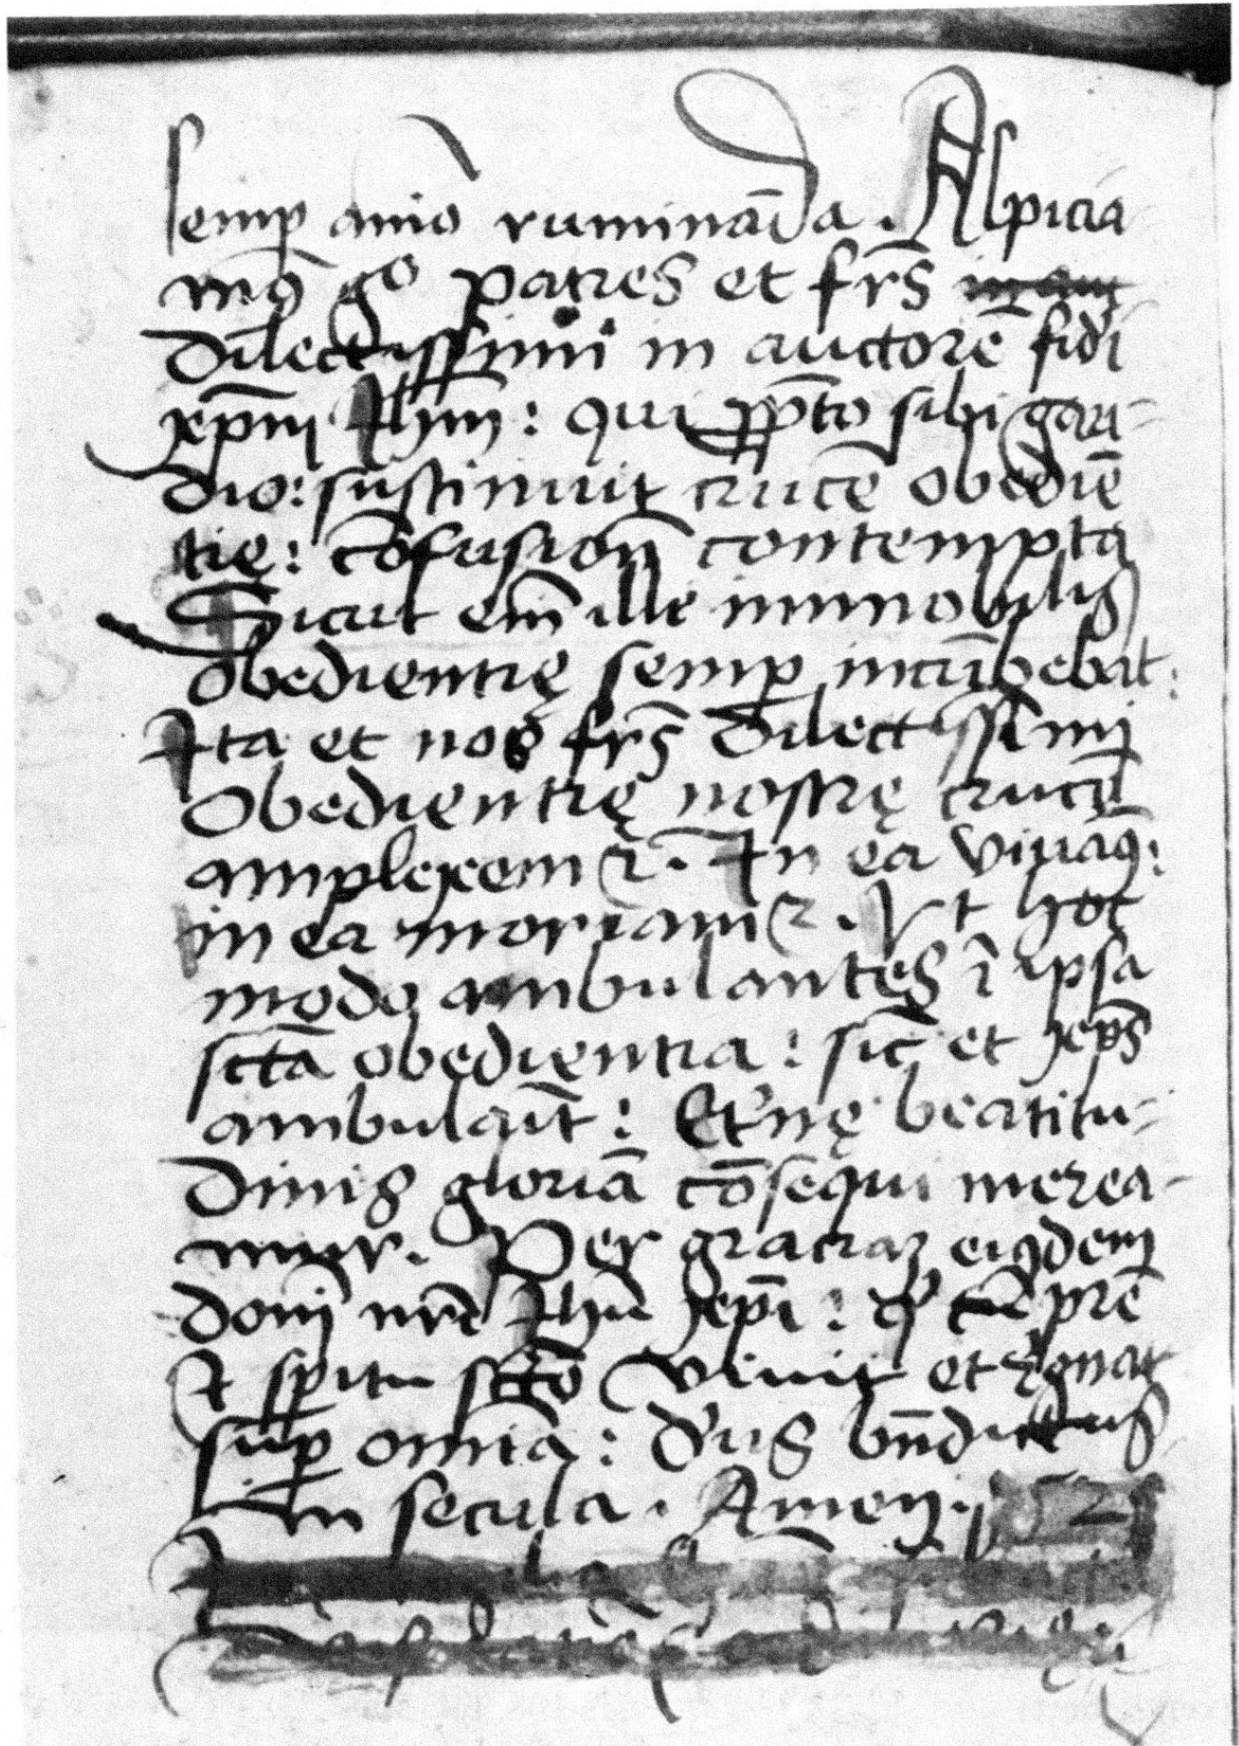 semp̲ aīo rumināda . Aspicia
mꝰ gͦ patres et fr̄s
dilectissimi in auctorē fidi
xp̄m Ihm̄ : qui ꝓpōto sibi gau-
dio : sustinuit crucē obediē
tię : cōfusion̄ contempta
Sicut em̄ ille immobilis
obedientię semp̲ incūbebat :
Ita et nos fr̄s dilectissimi
Obedientię nostrę crucē
amplexemꝛ . In ea viuaꝰ :
in ea moriamꝛ . Vt hoc
modo ambulantes ī ipsa
sctā obedientia : sic̄ et xp̄s
ambulauit : Et'nę beatitu-
dinis gloriā cōsequi merea-
mur . Per graciaꝫ eiꝰdem
domī nr̄i Ihū xp̄i : qͥ cū pr̄e
⁊ sp̄itu sctō viuit et regnat
sup̲ om̄ia : de'us bn̄dictus
In secula . Amen . 1521